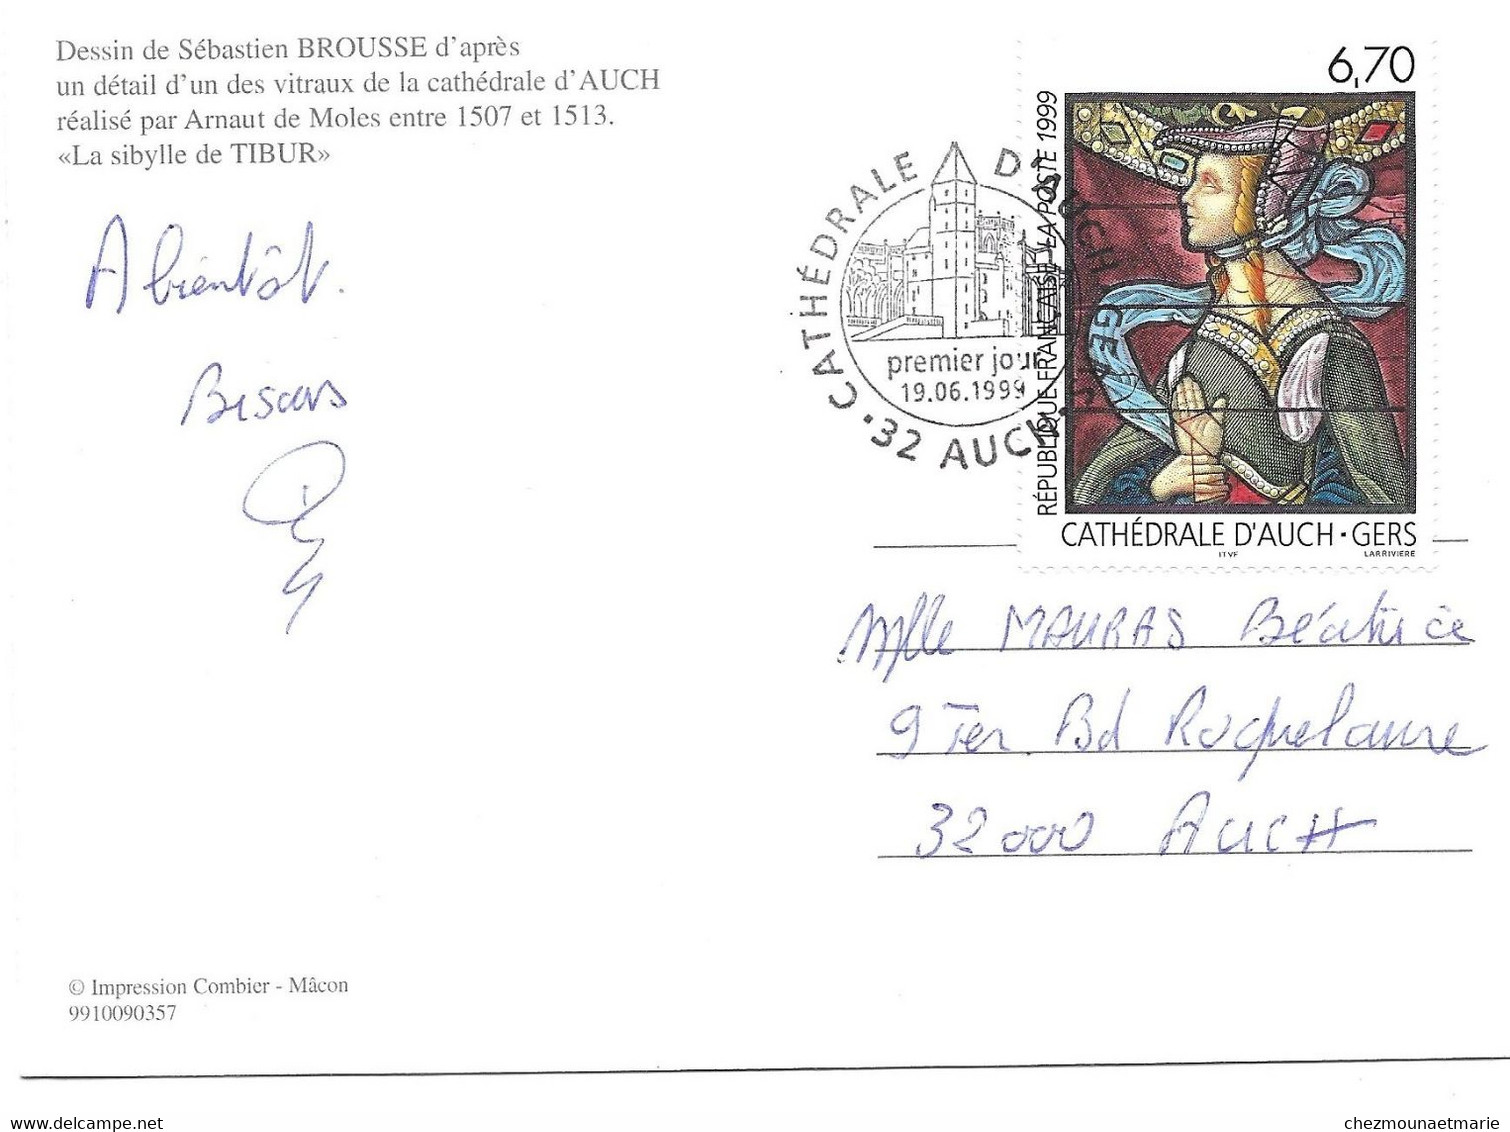 Dessin de Sébastien BROUSSE d'après
un détail d'un des vitraux de la cathédrale d'AUCH
réalisé par Arnaut de Moles entre 1507 et 1513.
«La sibylle de TIBUR»
A bientôt.
Bisous
6,70
RÉPUBLIQUE FRANÇAISE LA POSTE 1999
CATHÉDRALE D'AUCH·GERS
ITVF LARRIVIERE
CATHÉDRALE D'AUCH GERS
premier jour
19.06.1999
·32 AUCH·
Mlle MAURAS Béatrice
9 Ter Bd Roquelaure
32000 AUCH
© Impression Combier - Mâcon
9910090357
chezmounaetmarie